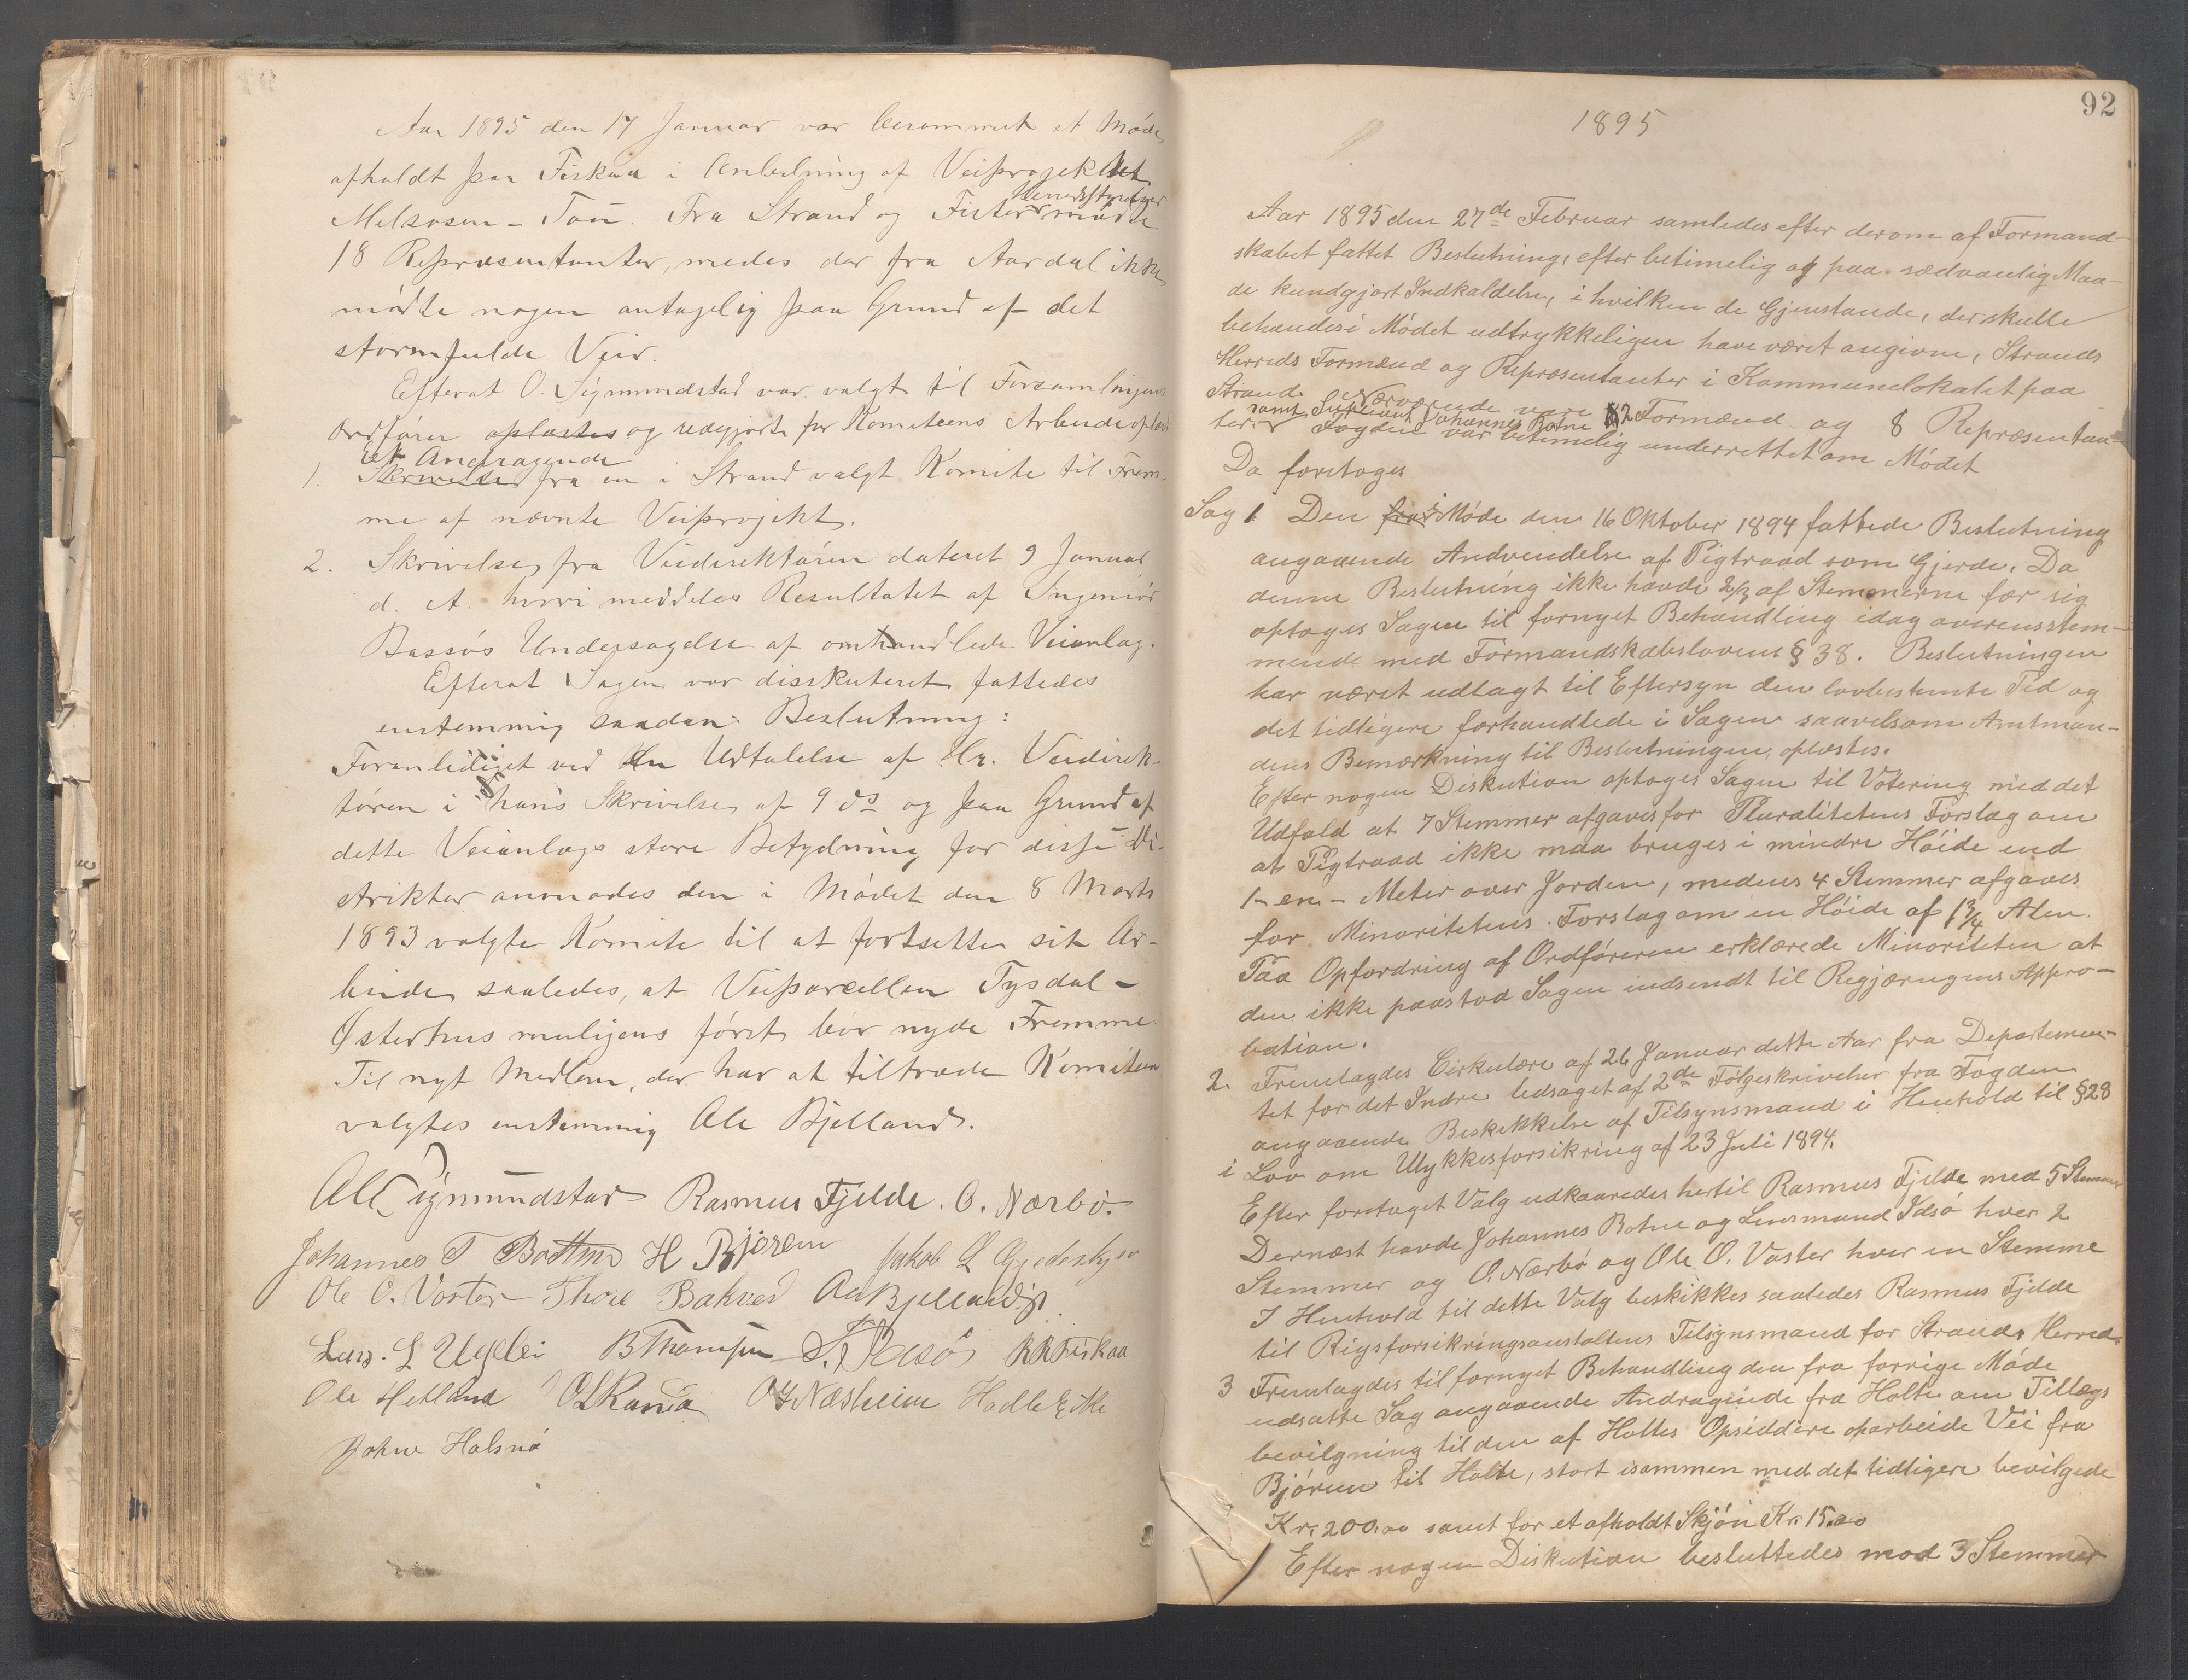 Aar 1895 den 17 Januar var berammet et Møde
afholdt paa Fiskaa i Anledning af Veiprojektet
Melsosen - Tau. Fra Strand og Fister Herredstyrelser mødte
18 Repræsentanter, medes der fra Aardal ikke
mødte nogen antagelig paa Grund af det
stormfulde Veir.
Efterat O. Sigmundstad var valgt til Forsamlingens
Ordfører oplæstes og redegjorde for Komiteens Arbeide oplæst
Et Andragende
1. Skrivelse fra en i Strand valgt Komite til Frem-
me af nævnte Veiprojekt.
2. Skrivelse fra Veidirektøren dateret 9 Januar
d. A. hvori meddeles Resultatet af Ingeniør
Bassøs Undersøgelse af omhandlede Veianlæg.
Efterat Sagen var disskuteret fattedes
enstemmig saadan Beslutning:
Foranlediget ved en Udtalelse af Hr. Veidirek-
tøren i hans Skrivelse af 9 ds og paa Grund af
dette Veianlægs store Betydning for disse Di-
strikter anmodes den i Mødet den 8 Marts
1893 valgte Komite til at fortsette sit Ar-
beide saaledes, at Veiparcellen Tysdal -
Østerhus muligens først bør nyde Fremme.
Til nyt Medlem, der har at tiltræde Komiteen
valgtes enstemmig Ole Bjelland.
Ole Sigmundstad Rasmus Fjelde. O. Nærbø.
Johannes T Bothne H Bjøreim Jakob L
Ole O. Voster Thore Bakved Bjelland
Lars. L B Thomsen R R Fiskaa
Ole Hetland O L Næsheim Hadle Eike
Johne Halsnø
92
1895
Aar 1895 den 27de Februar samledes efter derom af Formand-
skabet fattet Beslutning, efter betimelig og paa sædvanlig Maa-
de kundgjort Indkaldelse, i hvilken de Gjenstande, der skulle
behandles i Mødet udtrykkeligen have været angivne, Strands
Herreds Formænd og Repræsentanter i Kommunelokalet paa
Strand. Nærværende vare 2 Formænd og 8 Repræsentan-
ter samt Supleant Johannes Botne Fogden var betimelig underrettet om Mødet
Da foretoges
Sag 1. Den fra i Møde den 16 Oktober 1894 fattede Beslutning
angaaende Andvendelse af Pigtraad som Gjerde. Da
denne Beslutning ikke havde 2/3 af Stemmerne for sig
optoges Sagen til fornyet Behandling idag overensstem-
mende med Formandskabslovens § 38. Beslutningen
har været udlagt til Eftersyn den lovbestemte Tid og
det tidligere forhandlede i Sagen saavelsom Amtman-
dens Bemærkning til Beslutningen, oplæstes.
Efter nogen Diskution optoges Sagen til Votering med det
Udfald at 7 Stemmer afgaves for Pluralitetens Forslag om
at Pigtraad ikke maa bruges i mindre Høide end
1 - en - Meter over Jorden, medens 4 Stemmer afgaves
for Minoritetens Forslag om en Høide af 1 3/4 Alen.
Paa Opfordring af Ordføreren erklærede Minoriteten at
den ikke paastod Sagen indsendt til Regjæringens Appro-
bation.
2. Fremlagdes Cirkulære af 26 Januar dette Aar fra Departemen-
tet for det Indre ledsaget af 2de Følgeskrivelser fra Fogden
angaaende Beskikkelse af Tilsynsmand i Henhold til § 28
i Lov om Ulykkesforsikring af 23 Juli 1894.
Efter foretaget Valg udkaaredes hertil Rasmus Fjelde med 5 Stemmer
Dernæst havde Johannes Botne og Lensmand Idsø hver 2
Stemmer og O. Nærbø og Ole O. Voster hver en Stemme
I Henhold til dette Valg beskikkes saaledes Rasmus Fjelde
til Rigsforsikringsanstaltens Tilsynsmand for Strands Herred.
3 Fremlagdes til fornyet Behandling den fra forrige Møde
udsatte Sag angaaende Andragende fra Holte om Tillægs
bevilgning til den af Holtes Opsiddere oparbeide Vei fra
Bjøreim til Holte, stort isammen med det tidligere bevilgede
Kr. 200.00 samt for et afholdt Skjøn Kr. 15.00
Efter nogen Diskution besluttedes mod 3 Stemmer